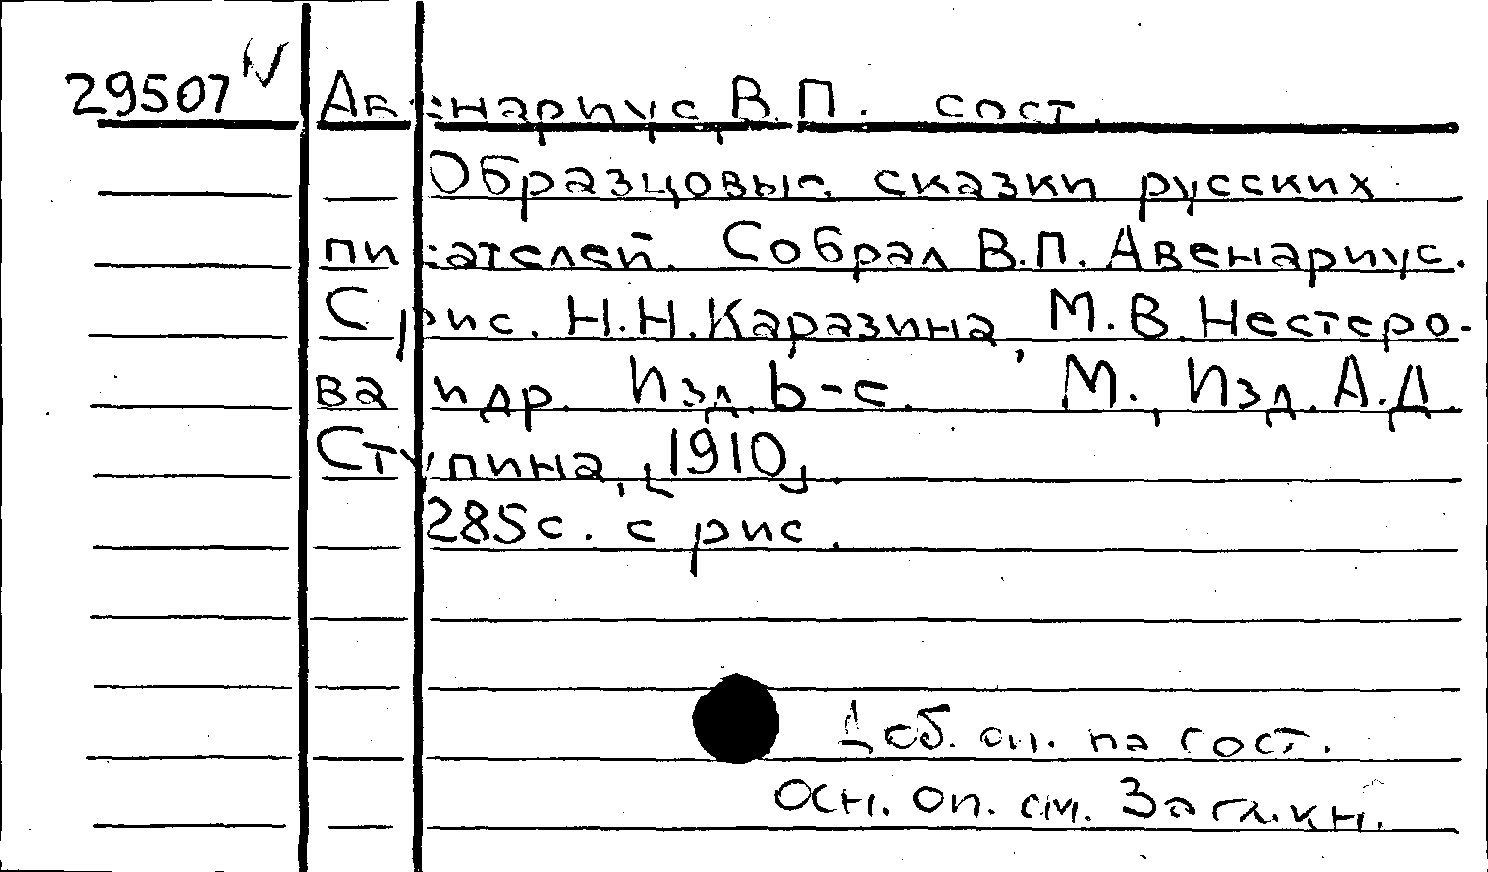 29507 Авенариус, В.П. сост.
Образцовые сказки русских
писателей. Собрал В.П. Авенариус.
С рис. Н.Н. Каразина, М.В. Нестеро-
ва и др. Изд. 6-е. М., Изд. А.Д.
Ступина, [1910].
285 с. с рис.
Доб. оп. на сост.
Осн. оп. см. Загл. кн.